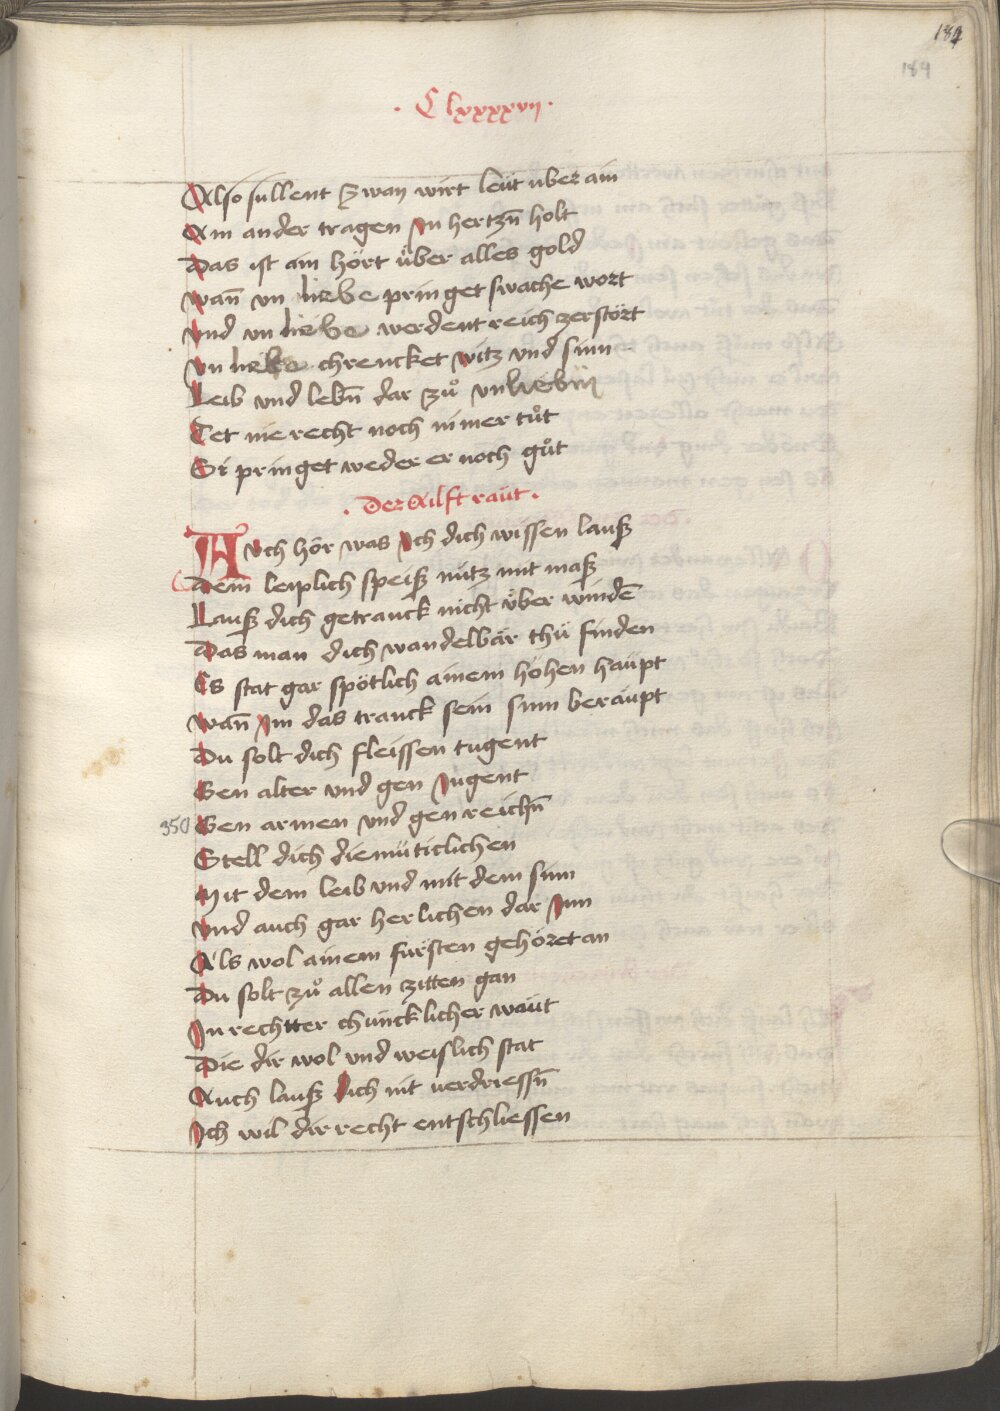 184
184
· Clxxxxvij ·
Also sullent zway wirt leüt uber ain
Ain ander tragen In hertzn̄ holt
Das ist ain hört über alles gold
Wan̄ vn liebe pringet swache wort
Vnd vn liebe werdent reich zerstört
Vn liebe chrencket witz vnd sinn
Leib vnd lebn̄ dar zů vnliebin
Tet nie recht noch nimer tůt
Si pringet weder er noch gůt
· Der Ailft raüt ·
AVch hör was Ich dich wissen lauß
Dem leiplich speiß nütz mit maß
Lauß dich getranck nicht über windē
Das man dich wandelbär thü finden
Es stat gar spötlich ainem hohen haüpt
Wan̄ Im das tranck sein sinn beraüpt
Du solt dich fleissen tugent
Gen alter vnd gen Jugent
350 Gen armen vnd gen reichn̄
Stell dich diemüticlichen
Mit dem leib vnd mit dem sinn
Vnd auch gar herlichen dar Inn
Als wol ainem fürsten gehöret an
Du solt zů allen zitten gan
In rechtter chüncklicher waüt
Die dir wol vnd weislich stat
Auch lauß dich nit verdriessn̄
Ich wil dir recht entschliessen